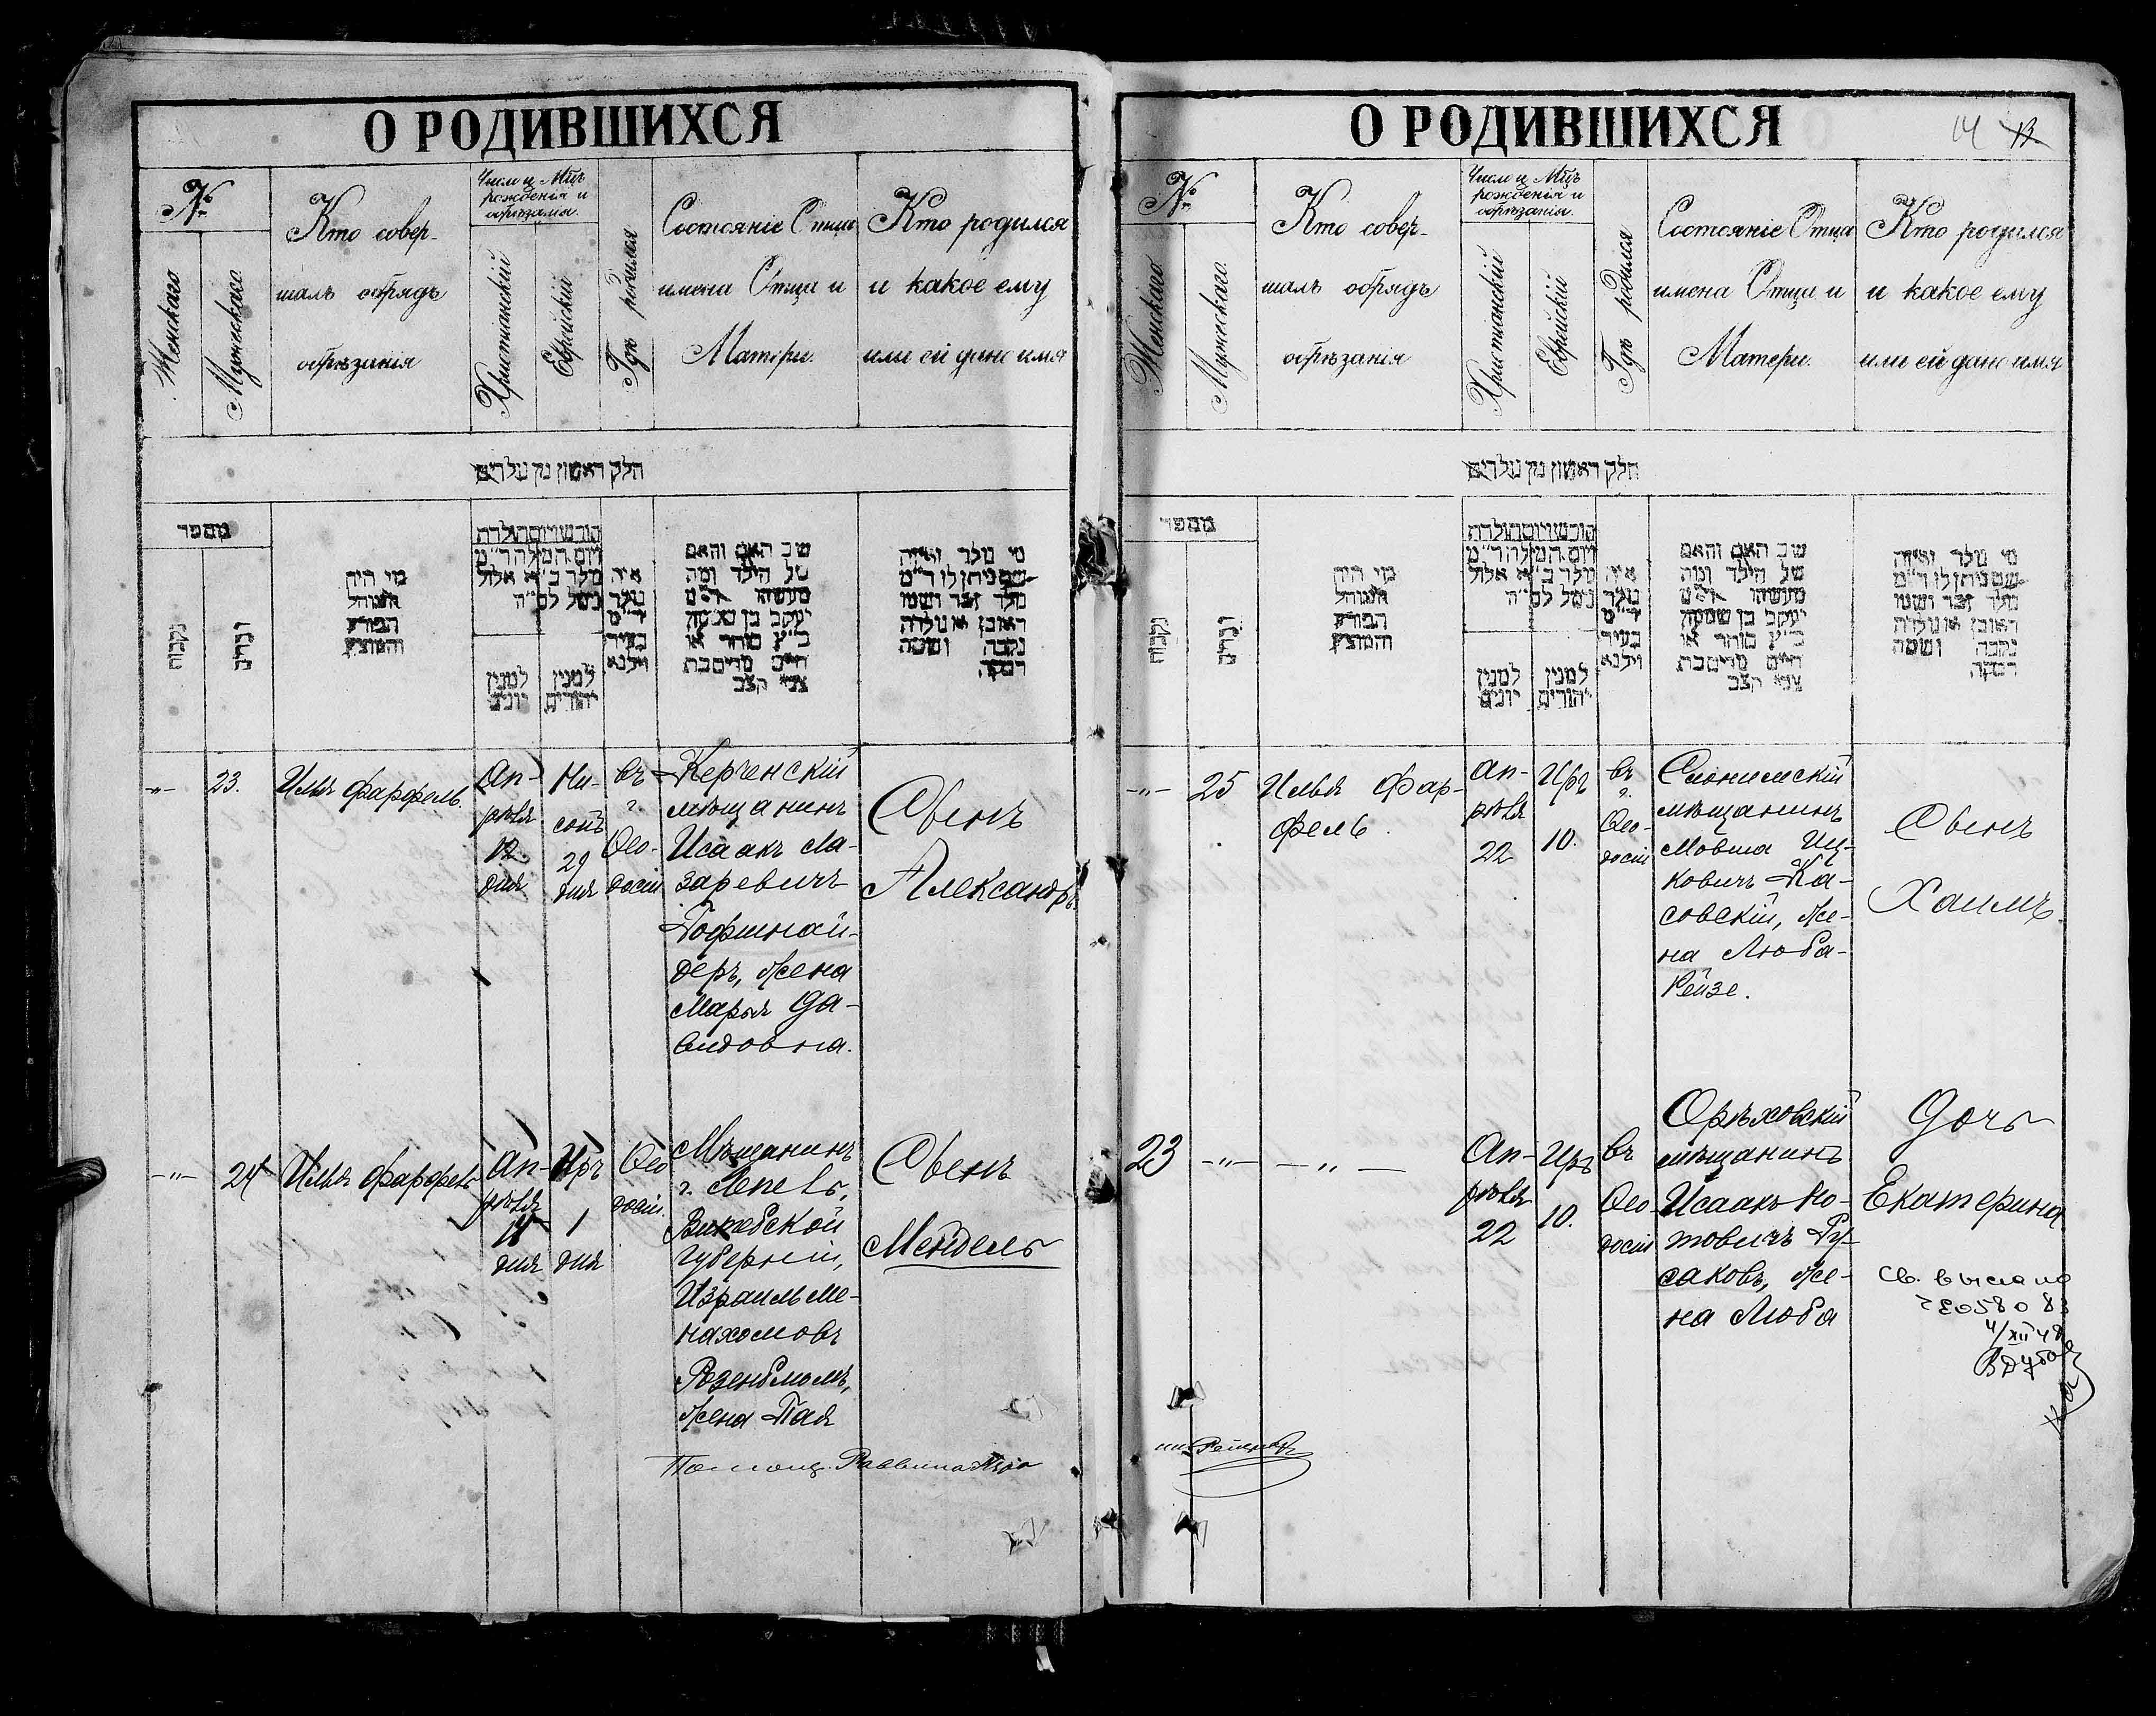 О РОДИВШИХСЯ
№
Женскаго
Мужескаго.
Кто совер-
шалъ обрядъ
обрѣзанія
Число и Мѣц.
рожденія и
обрѣзанія.
Христіанскій
Еврейскій
Гдѣ родился
Состояніе Отца
имена Отца и
Матери.
Кто родился
и какое ему
или ей дано имя
חלק ראשון מן נולדים
מספר
נקבות
זכרים
מי היה
המוהל
הפורע
והמוצץ
למנין
יונים
למנין
יהודים
איה
נולד
ד״מ
בעיר
ווילנא
שב האם והאם
של הילד ומה
מעשהו ד״מ
יעקב בן שמעון
כ״ץ סוחר או
חיים מרים בת
צבי קצב
מי נולד ואיזה
שם ניתן לו ד״מ
נולד זכר ושמו
ראובן או נולדה
נקבה ושמה
רבקה
-"-
23.
Илья Фарфель.
Ап-
рѣля
12
дня
Ни-
сонъ
29
дня
въ
г.
Ѳео-
досіи
Керченскій
мѣщанинъ
Исаакъ Ла-
заревичъ
Гофшнай-
деръ, Жена
Марья Да-
видовна.
Сынъ
Александръ.
-"-
24
Илья Фарфель
Ап-
рѣля
14
дня
Иръ
1
дня
Ѳео
досіи.
Мѣщанинъ
г. Лепель,
Витебской
губерніи,
Израиль Ме-
нахомовъ
Розенблюмъ,
Жена Пая
Сынъ
Мендель
Помощ. Раввина
О РОДИВШИХСЯ
14 13
№
Женскаго
Мужескаго.
Кто совер-
шалъ обрядъ
обрѣзанія
Число и Мѣц.
рожденія и
обрѣзанія.
Христіанскій
Еврейскій
Гдѣ родился
Состояніе Отца
имена Отца и
Матери.
Кто родился
и какое ему
или ей дано имя
חלק ראשון מן נולדים
מספר
נקבות
זכרים
מי היה
המוהל
הפורע
והמוצץ
למנין
יונים
למנין
יהודים
איה
נולד
ד״מ
בעיר
ווילנא
שב האם והאם
של הילד ומה
מעשהו ד״מ
יעקב בן שמעון
כ״ץ סוחר או
חיים מרים בת
צבי קצב
מי נולד ואיזה
שם ניתן לו ד״מ
נולד זכר ושמו
ראובן או נולדה
נקבה ושמה
רבקה
-"-
25
Илья Фар-
фель.
Ап-
рѣля
22
Иръ
10.
въ
г.
Ѳео-
досіи
Слонимскій
мѣщанинъ
Мовша Иц-
ковичъ Ка-
совскій, Же-
на Люба-
Рейзе.
Сынъ
Хаимъ.
23
-"-
-"-
Ап-
рѣля
22
Иръ
10.
въ
Ѳео-
досіи
Орѣховскій
мѣщанинъ
Исаакъ Но-
товичъ Ру-
саковъ, Же-
на Люба
Дочь
Екатерина
Св. выслано
4/XII 48